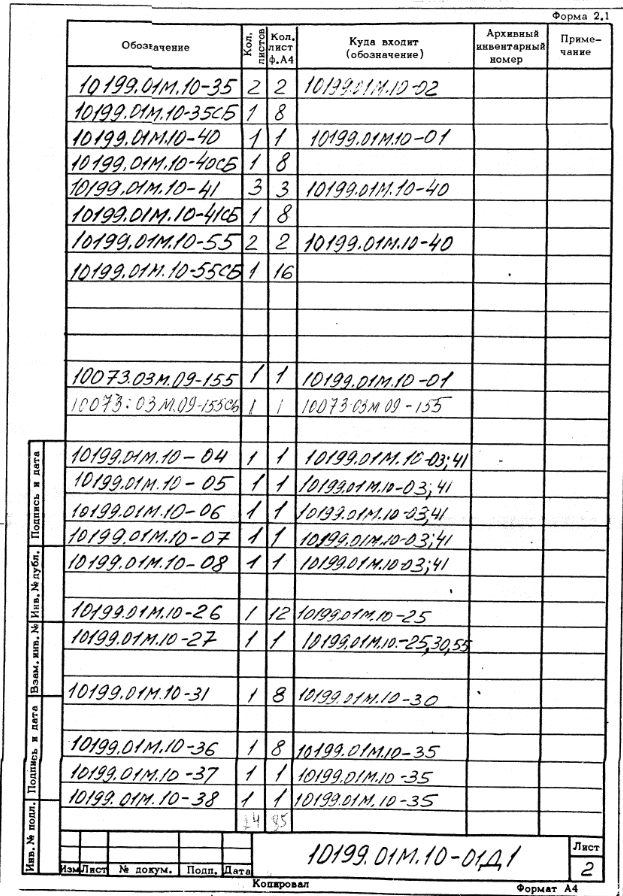 Форма 2.1
Обозначение Кол. листов Кол. лист ф.А4 Куда входит (обозначение) Архивный инвентарный номер Приме-чание
10199.01М.10-35 2 2 10199.01М.10-02
10199.01М.10-35СБ 1 8
10199.01М.10-40 1 1 10199.01М.10-01
10199.01М.10-40СБ 1 8
10199.01М.10-41 3 3 10199.01М.10-40
10199.01М.10-41СБ 1 8
10199.01М.10-55 2 2 10199.01М.10-40
10199.01М.10-55СБ 1 16
10073.03М.09-155 1 1 10199.01М.10-01
10073.03М.09-155СБ 1 1 10073.03М.09-155
10199.01М.10-04 1 1 10199.01М.10-03;41
10199.01М.10-05 1 1 10199.01М.10-03;41
10199.01М.10-06 1 1 10199.01М.10-03,41
10199.01М.10-07 1 1 10199.01М.10-03;41
10199.01М.10-08 1 1 10199.01М.10-03;41
10199.01М.10-26 1 12 10199.01М.10-25
10199.01М.10-27 1 1 10199.01М.10-25,30,55
10199.01М.10-31 1 8 10199.01М.10-30
10199.01М.10-36 1 8 10199.01М.10-35
10199.01М.10-37 1 1 10199.01М.10-35
10199.01М.10-38 1 1 10199.01М.10-35
Инв. № подл. Подпись и дата Взам. инв. № Инв. № дубл. Подпись и дата
10199.01М.10-01Д1
Лист
2
Изм Лист № докум. Подп. Дата
Копировал Формат А4